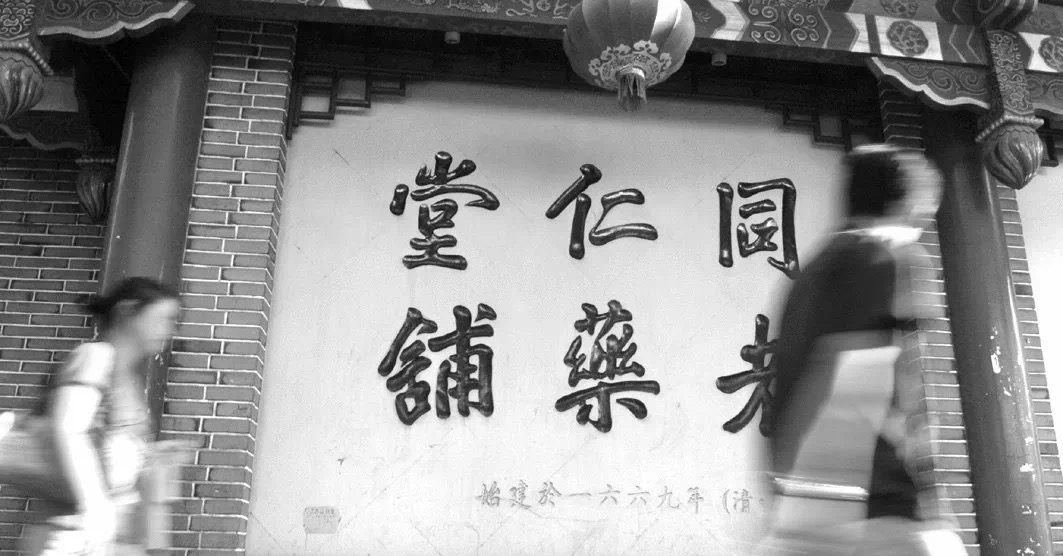 同仁堂
老藥舖
始建於一六六九年(清